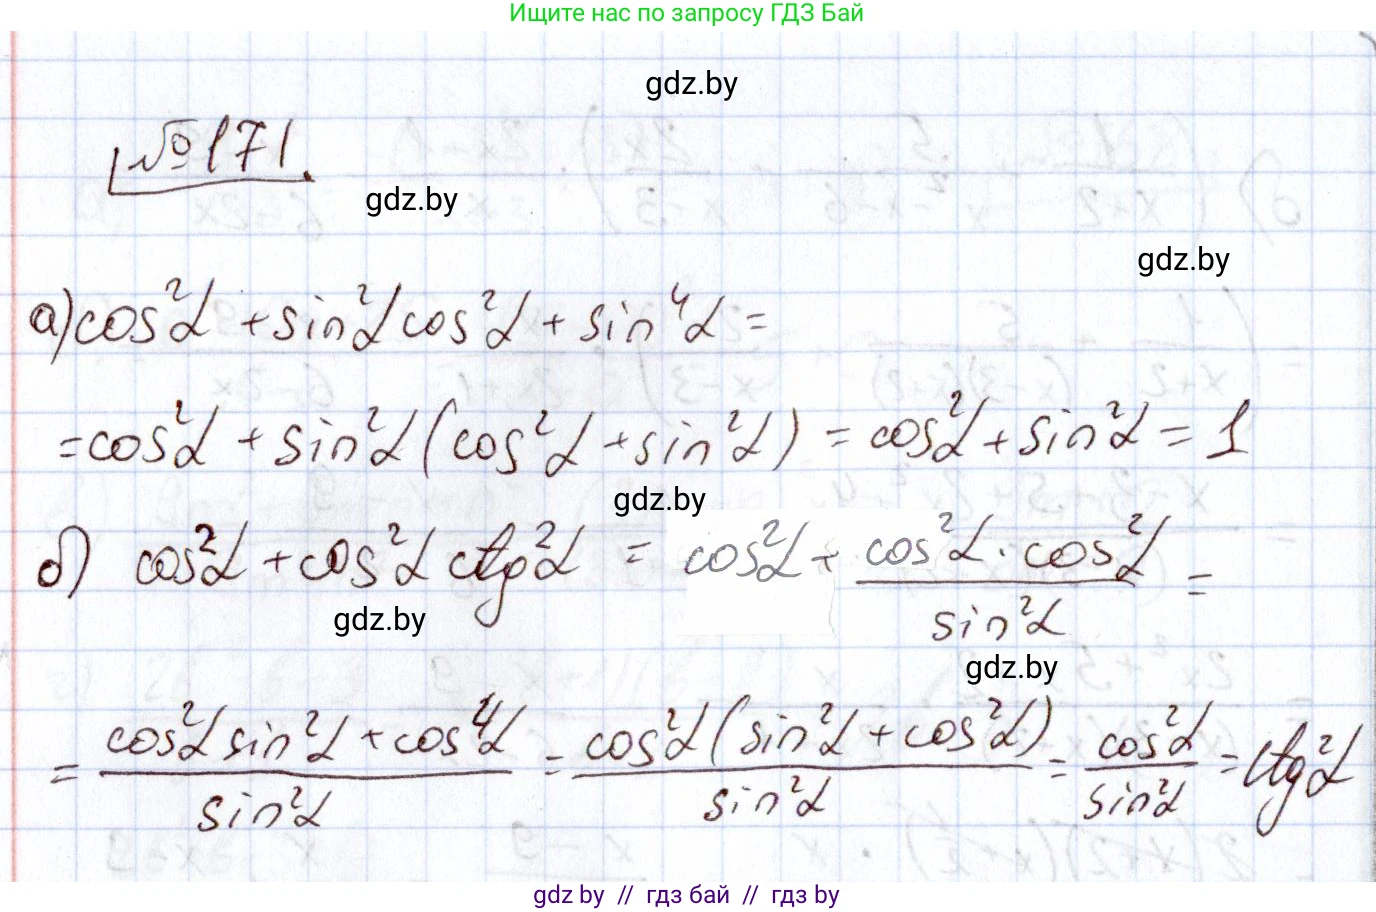 Ищите нас по запросу ГДЗ Бай
gdz.by
№171.
gdz.by
gdz.by
а) cos²α + sin²α cos²α + sin⁴α =
= cos²α + sin²α (cos²α + sin²α) = cos²α + sin²α = 1
gdz.by
б) cos²α + cos²α ctg²α = cos²α + (cos²α · cos²α)/(sin²α) =
gdz.by
gdz.by
= (cos²α sin²α + cos⁴α)/(sin²α) = (cos²α (sin²α + cos²α))/(sin²α) = (cos²α)/(sin²α) = ctg²α
gdz.by // гдз бай // гдз by